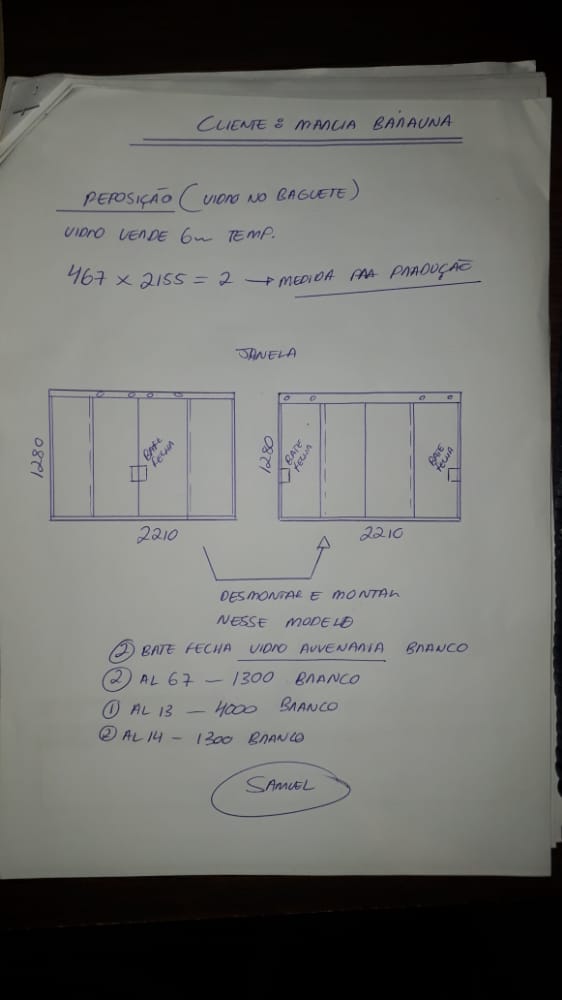 CLIENTE: MARCIA BARAUNA
REPOSIÇÃO (VIDRO NO BAGUETE)
VIDRO VERDE 6m TEMP.
467 x 2155 = 2 → MEDIDA PRA PRODUÇÃO
JANELA
1280
BATE FECHA
2210
1280
BATE FECHA
BATE FECHA
2210
DESMONTAR E MONTAR
NESSE MODELO
② BATE FECHA VIDRO ALVENARIA BRANCO
② AL 67 - 1300 BRANCO
① AL 13 - 4000 BRANCO
② AL 14 - 1300 BRANCO
SAMUEL